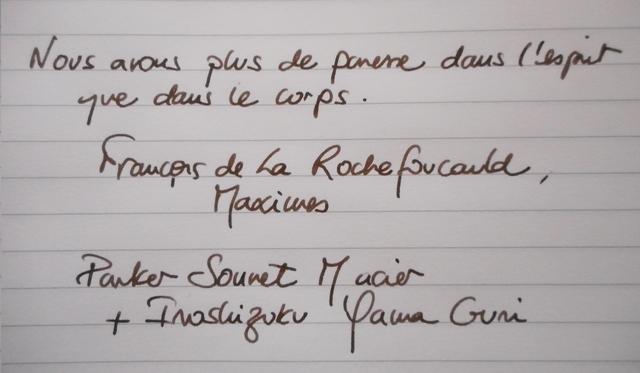 Nous avons plus de paresse dans l'esprit
que dans le corps.
François de La Rochefoucauld,
Maximes
Parker Sonnet M acier
+ Iroshizuku Yama Guri